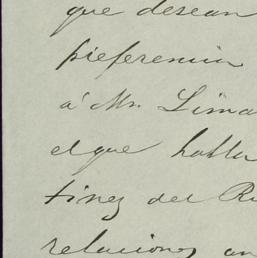 que desean
preferencia
á Mr. Lima
el que habla
tinez del R
relaciones an